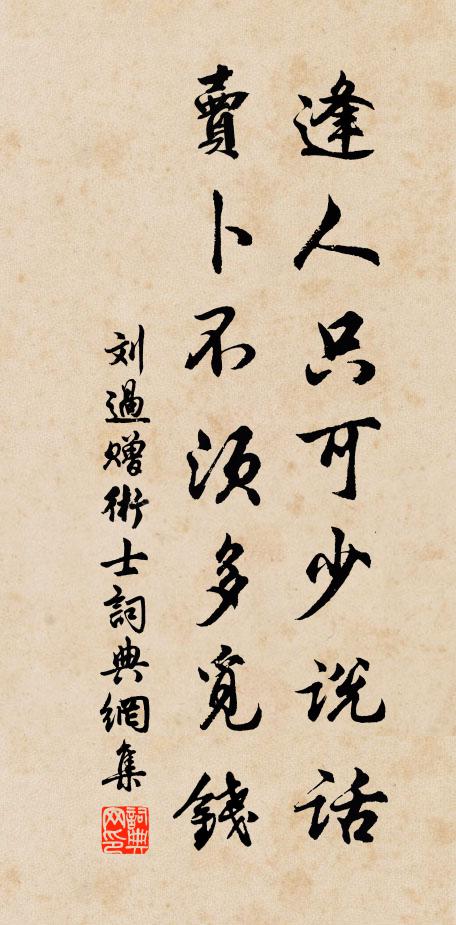 逢人只可少说话
賣卜不須多覓錢
刘過赠術士詞典網集
詞典网印